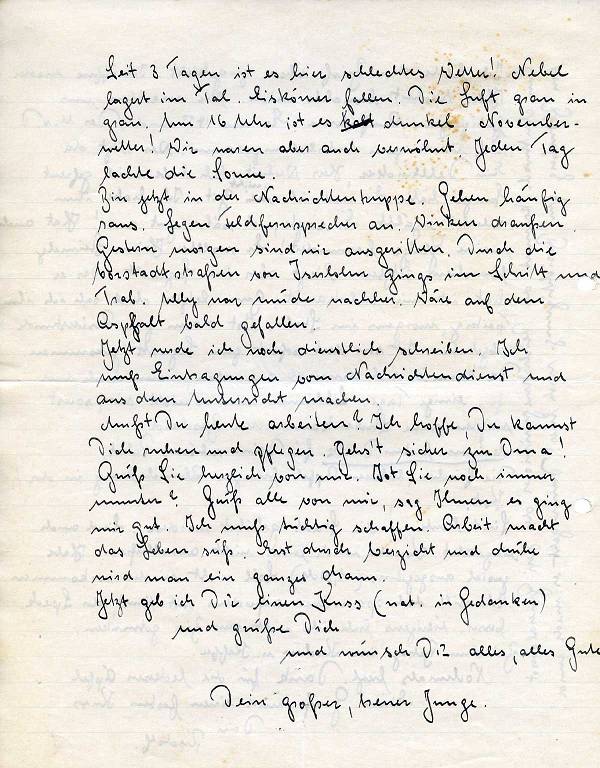 Seit 3 Tagen ist es hier schlechtes Wetter! Nebel
lagert im Tal. Eiskörner fallen. Die Luft grau in
grau. Um 16 Uhr ist es kalt dunkel. November-
wetter! Wir waren aber auch verwöhnt. Jeden Tag
lachte die Sonne.
Bin jetzt in der Nachrichtentruppe. Gehen häufig
raus. Legen Feldfernsprecher an. Winken draußen.
Gestern morgen sind wir ausgeritten. Durch die
Vorstadtstraßen von Iserlohn gings im Schritt und
Trab. war müde nachher. Wäre auf dem
Asphalt bald gefallen.
Jetzt werde ich noch dienstlich schreiben. Ich
muß Eintragungen vom Nachrichtendienst und
aus dem Unterricht machen.
Mußt Du heute arbeiten? Ich hoffe, Du kannst
Dich ruhen und pflegen. Gehs't sicher zur Oma!
Grüß Sie herzlich von mir. Ist Sie noch immer
munter? Grüß alle von mir, sag Ihnen es ging
mir gut. Ich muß tüchtig schaffen. Arbeit macht
das Leben süß. Erst durch Verzicht und
wird man ein ganzer Mann.
Jetzt geb ich Dir einen Kuss (nat. in Gedanken)
und grüße Dich
und wünsch Dir alles, alles Gute
Dein großer, treuer Junge.